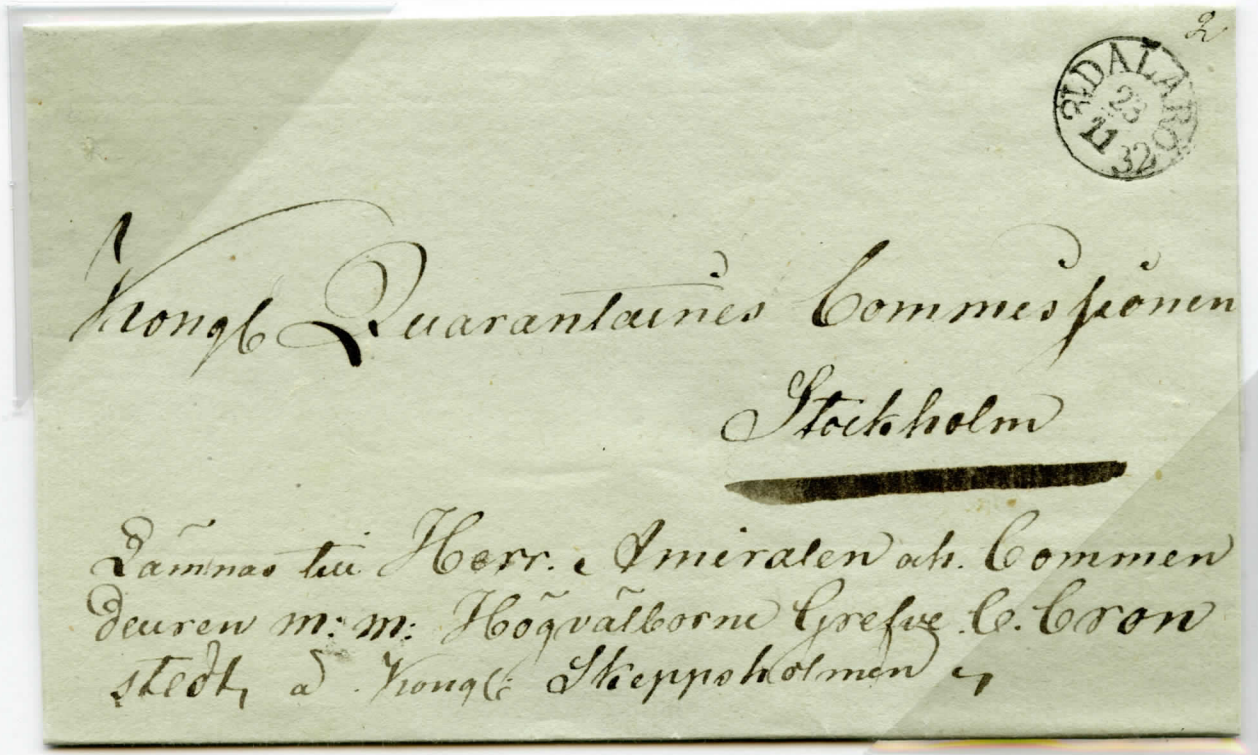 2
DALARÖ
23
11
32
Kongl Quarantaines Commissionen
Stockholm
Lämnas till Herr. Amiralen och. Commen
deuren m: m: Högvälborne Grefve C. Cron
stedt, å Kongl: Skeppsholmen